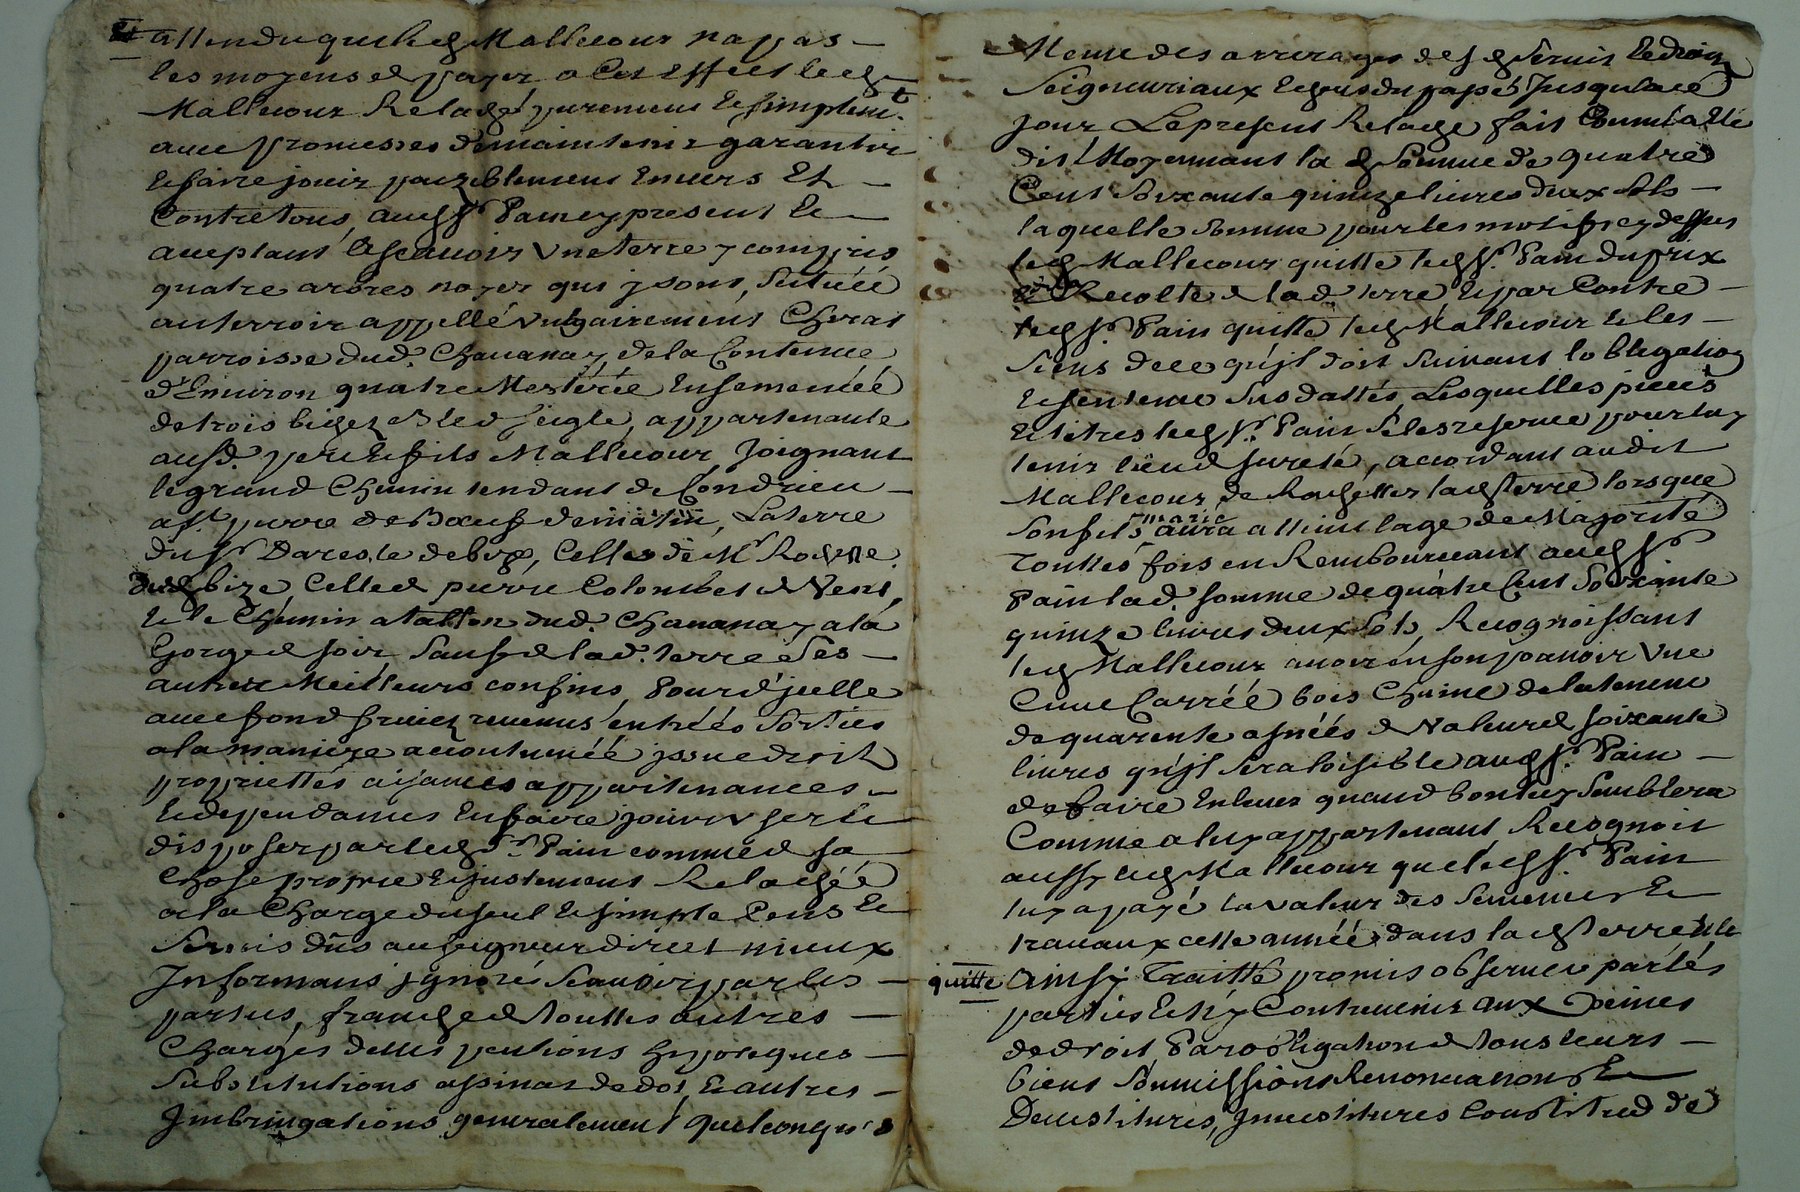 Et attendu que led Mallecour na pas
les moyens de payer a Cet Effect led
Mallecour Relaché purement Et simplemt
avec promesses de maintenir garantir
Et faire jouir paiziblement Envers Et
Contre tous, aud Sr Pain ey present Et
aceptant Ascavoir Une terre y compris
quatre arbres noyer qui y sont, Scituéé
au terroir appellé vulgairement Cheras
parroisse dud. Chavanay de la Contenue
d'Environ quatre Mesteréé Ensemencéé
de trois biches Bled seigle, appartenante
ausd. pere Et fils Mallecour Joignant
le grand Chemin tendant de Condrieu
a St pierre de Boeuf de matin, La terre
du Sr Dareste de bize, Celles de Mr
dud bize Celle de pierre Colombet de Vent,
Et le Chemin dud. Chavanay a la
Gorge de soir Sauf de lad. terre Ses
autres Meilleurs confins Pour d'jcelle
avec fond fruicz revenus entréés Sorties
a la maniere accoutuméé jssue droit
propriettés aisances appartenances
Et dependances En faire jouir User Et
disposer par led Sr Pain comme de sa
Chose propre Et justement Relachéé
a la Charge du seul Et simple Cens Et
Servis dûs au seigneur direct mieux
Informans jgnoré Scavoir par les
parties, franche de touttes autres
Charges dettes pentions hypoteques
Substitutions assinat de dot, Et autres
Imbringations generalement quelconques
Meme des arrerages de sd Servis Et droigz
Seigneuriaux Echus du passé Jusqu'a cé
jour Le present Relache fait Comme a Eté
dit Moyennant lad Somme de quatre
Cent Soixante quinze livres deux sols
laquelle somme pour les motifs cy dessus
led Mallecour quitte led Sr. Pain du prix
Recolte de lad. terre Et par Contre
led Sr. Pain quitte led Mallecour Et les
Siens de ce qu'jl doit Suivant lobligation
Et sentence Susdattés Lesquelles pieces
Et titres led Sr. Pain Seles reserve pour luy
tenir lieu de sureté, accordant audit
Mallecour de Rachetter lad terre lorsque
Son fils marie aura atteint lage de Majorité
Touttes fois en Remboursant aud Sr
Pain lad. somme de quatre Cent Soixante
quinze livres deux Sols, Recognoissant
led Mallecour avoir en son pouvoir Une
Cuve Carréé bois Chaine de la tenue
de quarente asnéés de Valeur de soixante
livres qu'jl Sera loisible aud Sr. Pain
de faire Enlever quand bon luy Semblera
Comme a luy appartenant Recognoit
aussy led Mallecour que led Sr. Pain
luy a payé la valeur des Semences Et
travaux cette annéé dans lad terre Et le
quitte Ainsy Traitté promis observer par lés
parties Et n'y Contrevenir aux Peines
de droit Par obligation de tous leurs
biens Soumissions Renonciations Et
Devestitures, Jnvestitures Constitut de